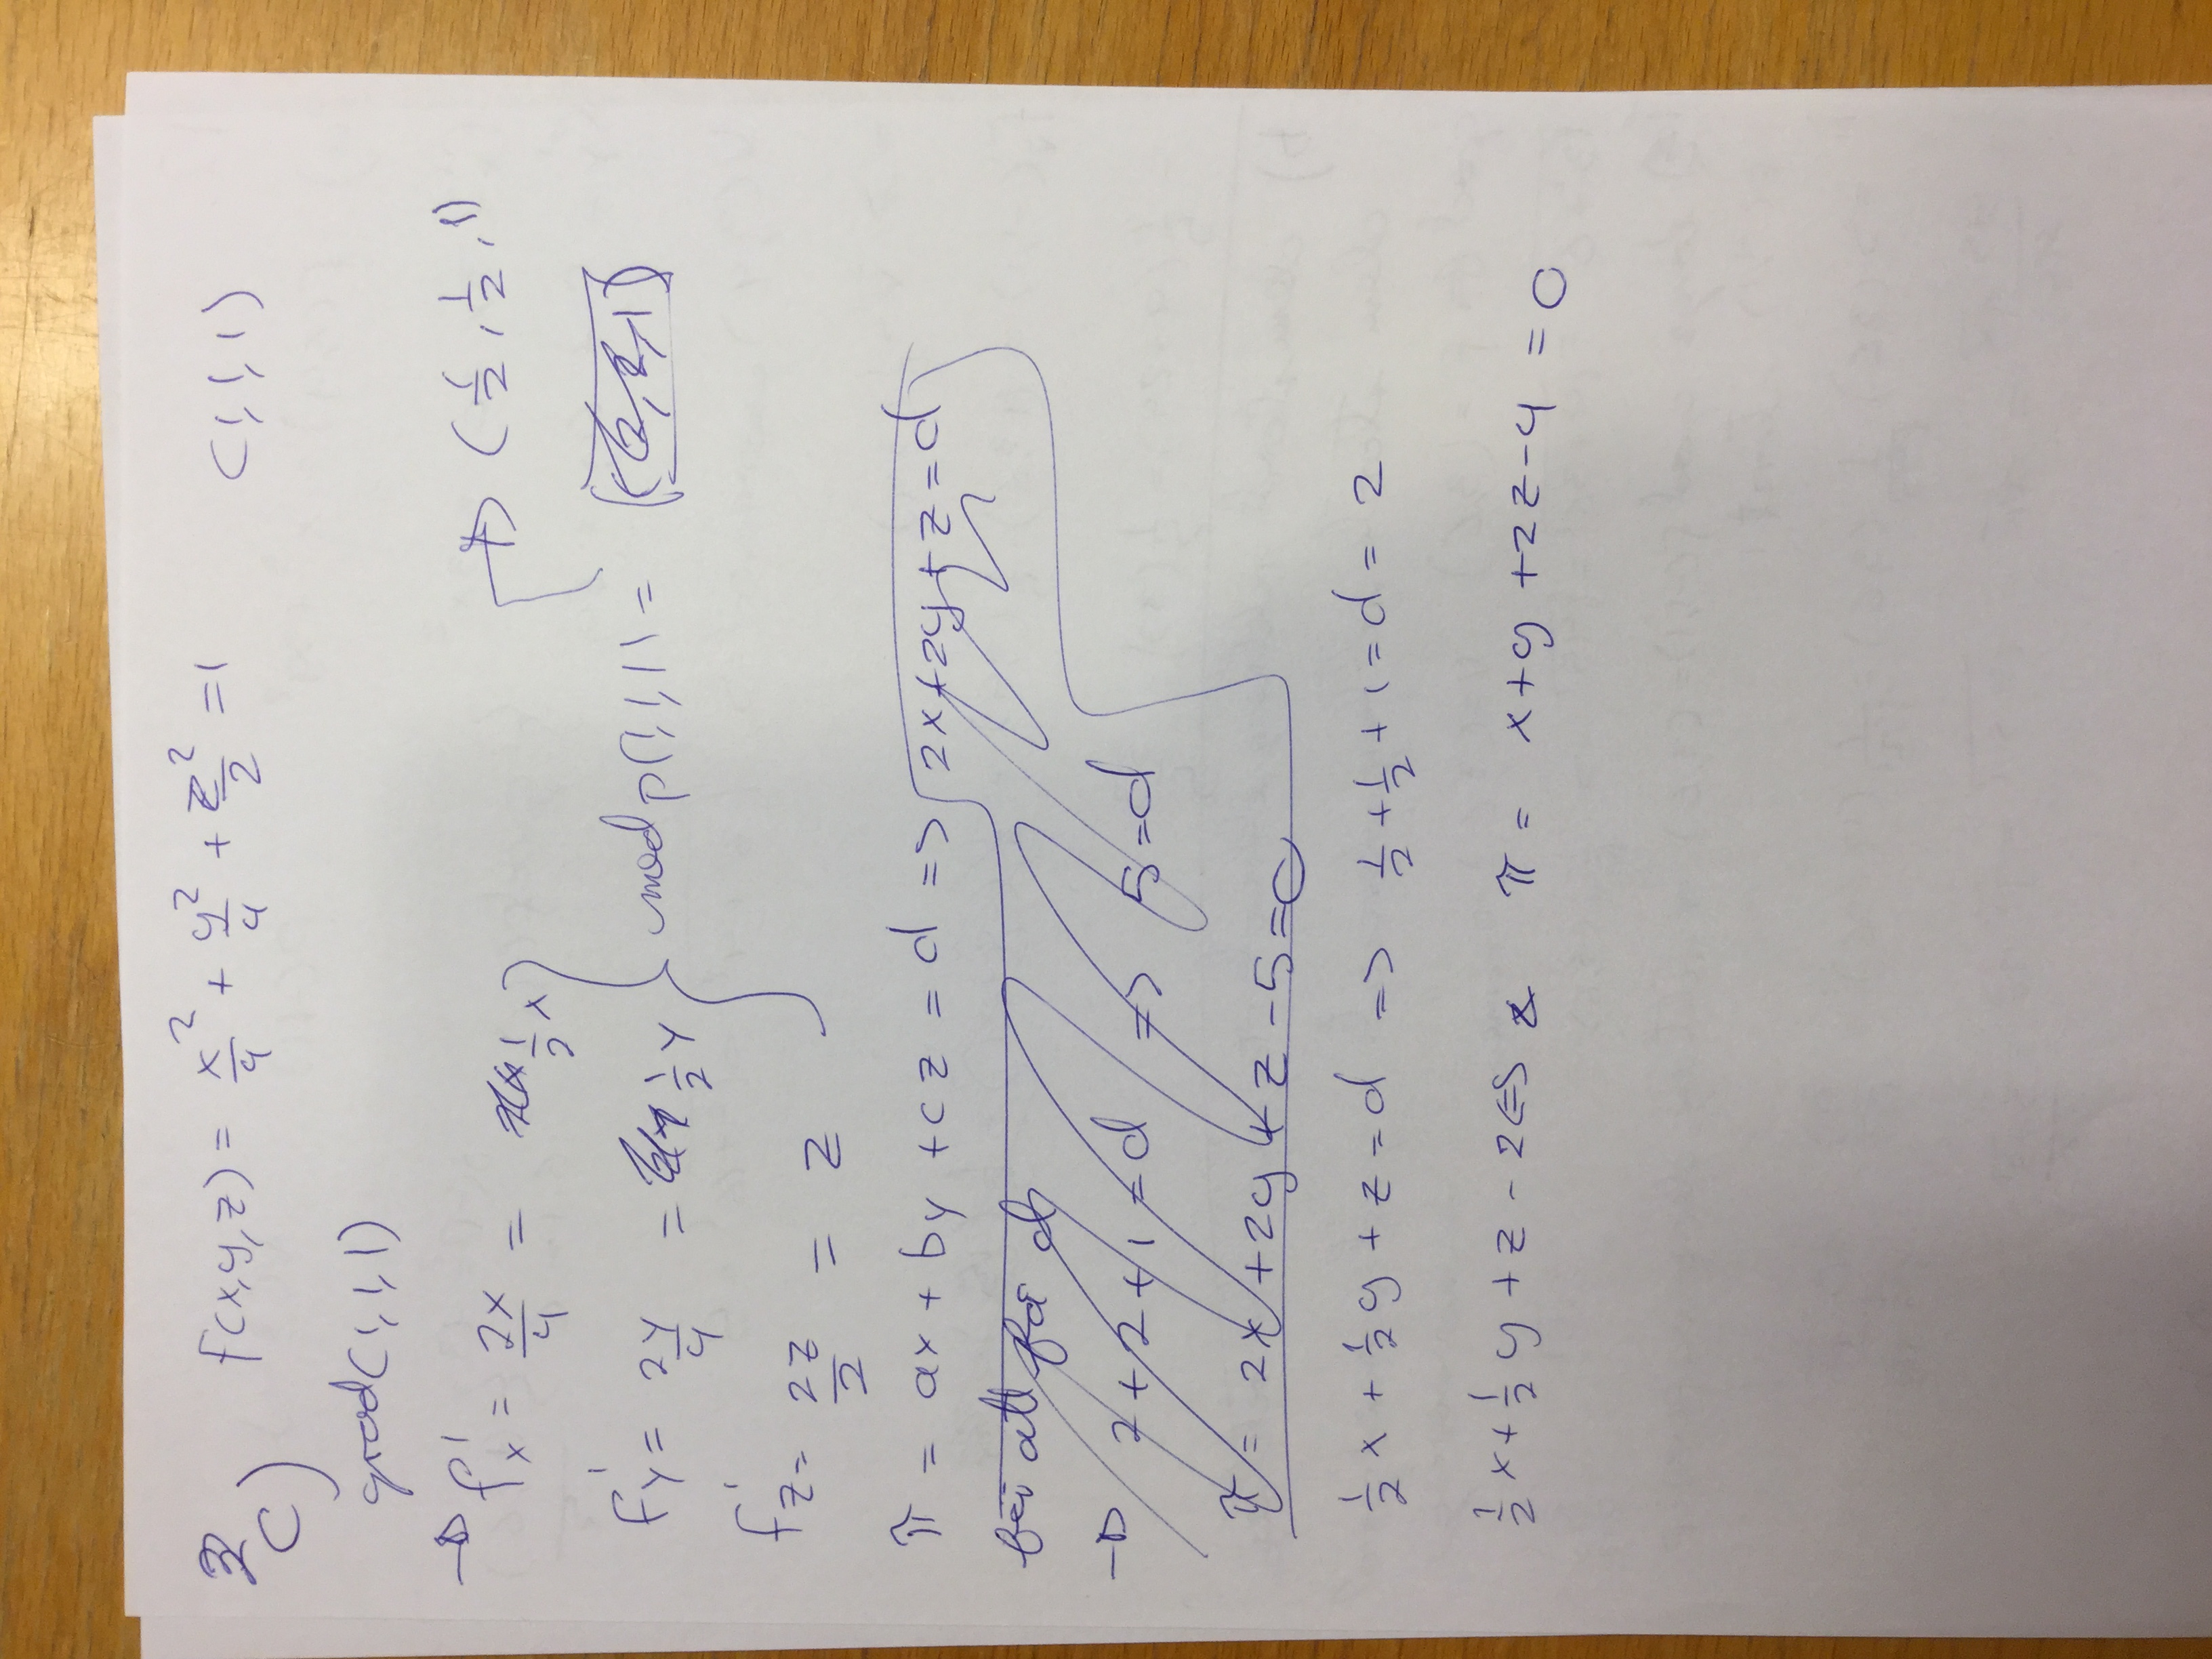 2c) f(x,y,z) = x²/4 + y²/4 + z²/2 = 1 (1,1,1)
grad(1,1,1)
→ f'x = 2x/4 = 1/2 x
f'y = 2y/4 = 1/2 y
f'z = 2z/2 = z
med p(1,1,1) = → (1/2, 1/2, 1)
π = ax + by + cz = d => 2x+2y+z=d
för att få d
→ 2+2+1=d => 5=d
π = 2x+2y+z-5=0
1/2 x + 1/2 y + z = d => 1/2 + 1/2 + 1 = d = 2
1/2 x + 1/2 y + z - 2 <=> π = x+y+2z-4 = 0